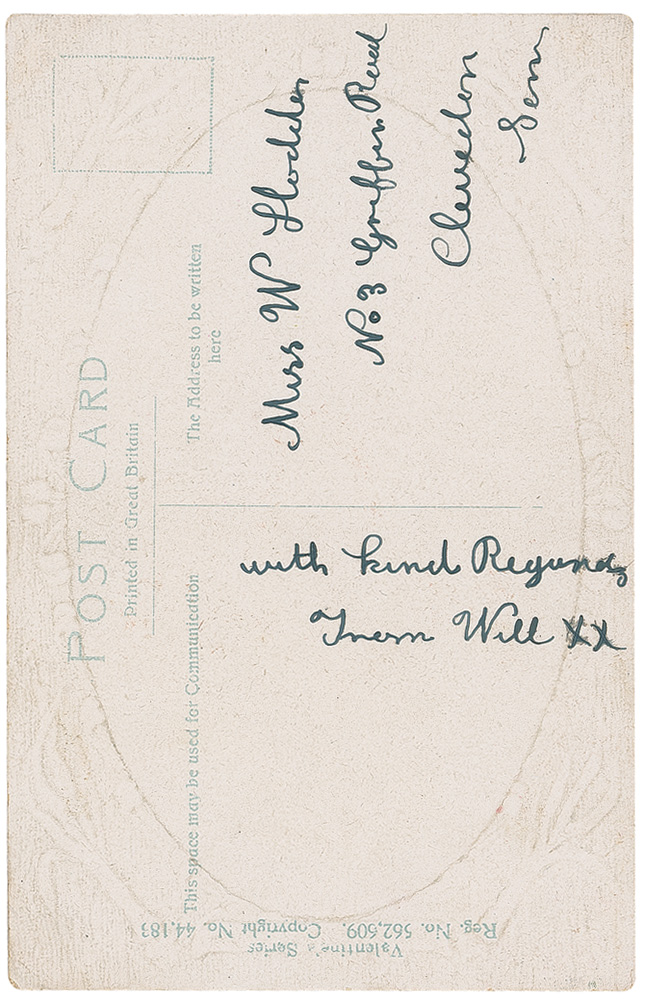 POST CARD
Printed in Great Britain
The Address to be written
here
Miss W Hodden
No 3 Griffin Road
Clevedon
Som
This space may be used for Communication
with kind Regards
From Will XX
Valentine's Series
Reg. No. 562,509. Copyright No. 44,183